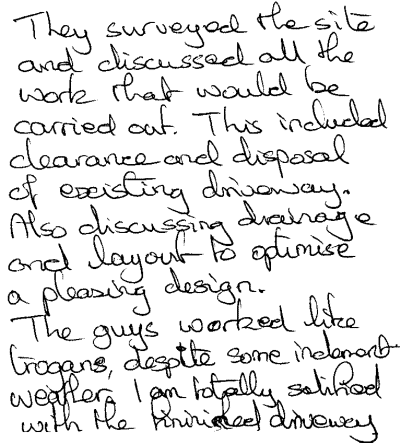 They surveyed the site
and discussed all the
work that would be
carried out. This included
clearance and disposal
of existing driveway.
Also discussing drainage
and layout to optimise
a pleasing design.
The guys worked like
trogans, despite some inclement
weather. I am totally satisfied
with the finished driveway